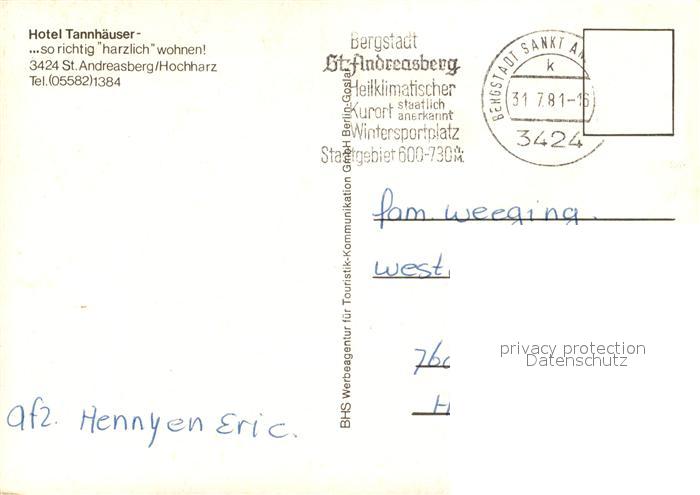 Hotel Tannhäuser-
...so richtig "harzlich" wohnen!
3424 St. Andreasberg/Hochharz
Tel. (05582) 1384
Bergstadt
St. Andreasberg
Heilklimatischer
Kurort staatlich anerkannt
Wintersportplatz
Stadtgebiet 600-730 ü. M.
BERGSTADT SANKT AN
k
31.7.81-16
3424
BHS Werbeagentur für Touristik-Kommunikation GmbH Berlin-Goslar
fam. Weeging.
West
760
H
privacy protection
Datenschutz
afz. Henny en Eric.